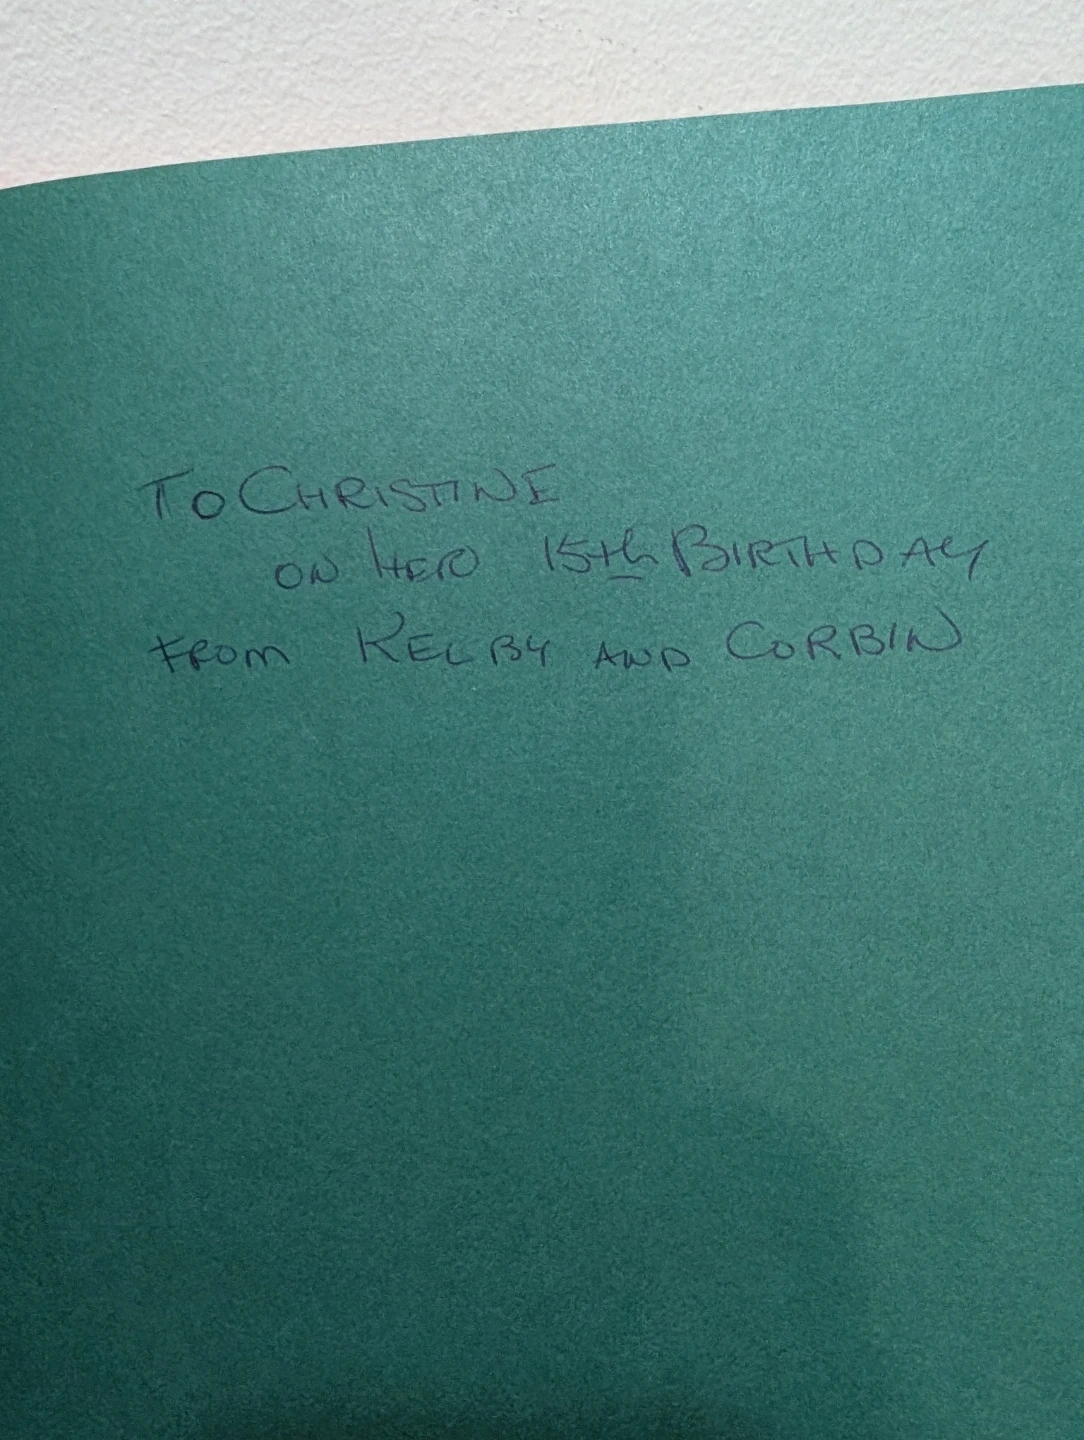 To CHRISTINE
ON HER 15th BIRTHDAY
FROM KELBY AND CORBIN